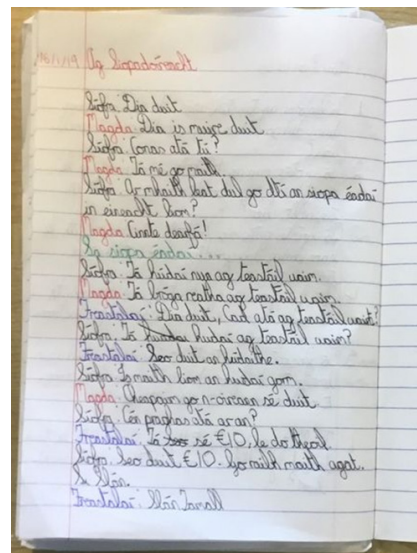 16/1/19 Ag Siopadóireacht
Síofra: Dia duit
Magda: Dia is muire duit
Síofra: Conas atá tú?
Magda: Tá mé go maith.
Síofra: Ar mhaith leat dul go dtí an siopa éadaí
in eineacht liom?
Magda: Cinnte dearfa!
Sa siopa éadaí...
Síofra: Tá húdaí nua ag teastáil uaim.
Magda: Tá bróga reatha ag teastáil uaim.
Freastalaí: Dia duit, Cad atá ag teastáil uait?
Síofra: Tá hudaí ag teastáil uaim?
Freastalaí: Seo duit an húdaithe.
Síofra: Is maith liom an hudaí gorm.
Magda: Cheapaim go n-oireann sé duit
Síofra: Cén praghas atá ar an?
Freastalaí: Tá seo sé €10, le do theoil.
Síofra: Seo duit €10. Go milh maith agat.
Slán.
Freastalaí: Slán Tamall